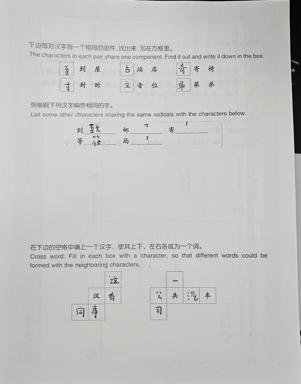 下边每对汉字有一个相同的部件，找出来，写在方框里。
The characters in each pair share one component. Find it out and write it down in the box.
至 到 屋 占 站 店 奇 寄 椅
寸 封 时 立 音 位 弟 第 弟
例举跟下列汉字偏旁相同的字。
List some other characters sharing the same radicals with the characters below.
到 邮 ? 寄 !
等 局 ?
在下边的空格中填上一个汉字，使其上下、左右各成为一个词。
Cross word: Fill in each box with a character, so that different words could be
formed with the neighboring characters.
这 一
汉 有 公 共 汽 车
同 事 司